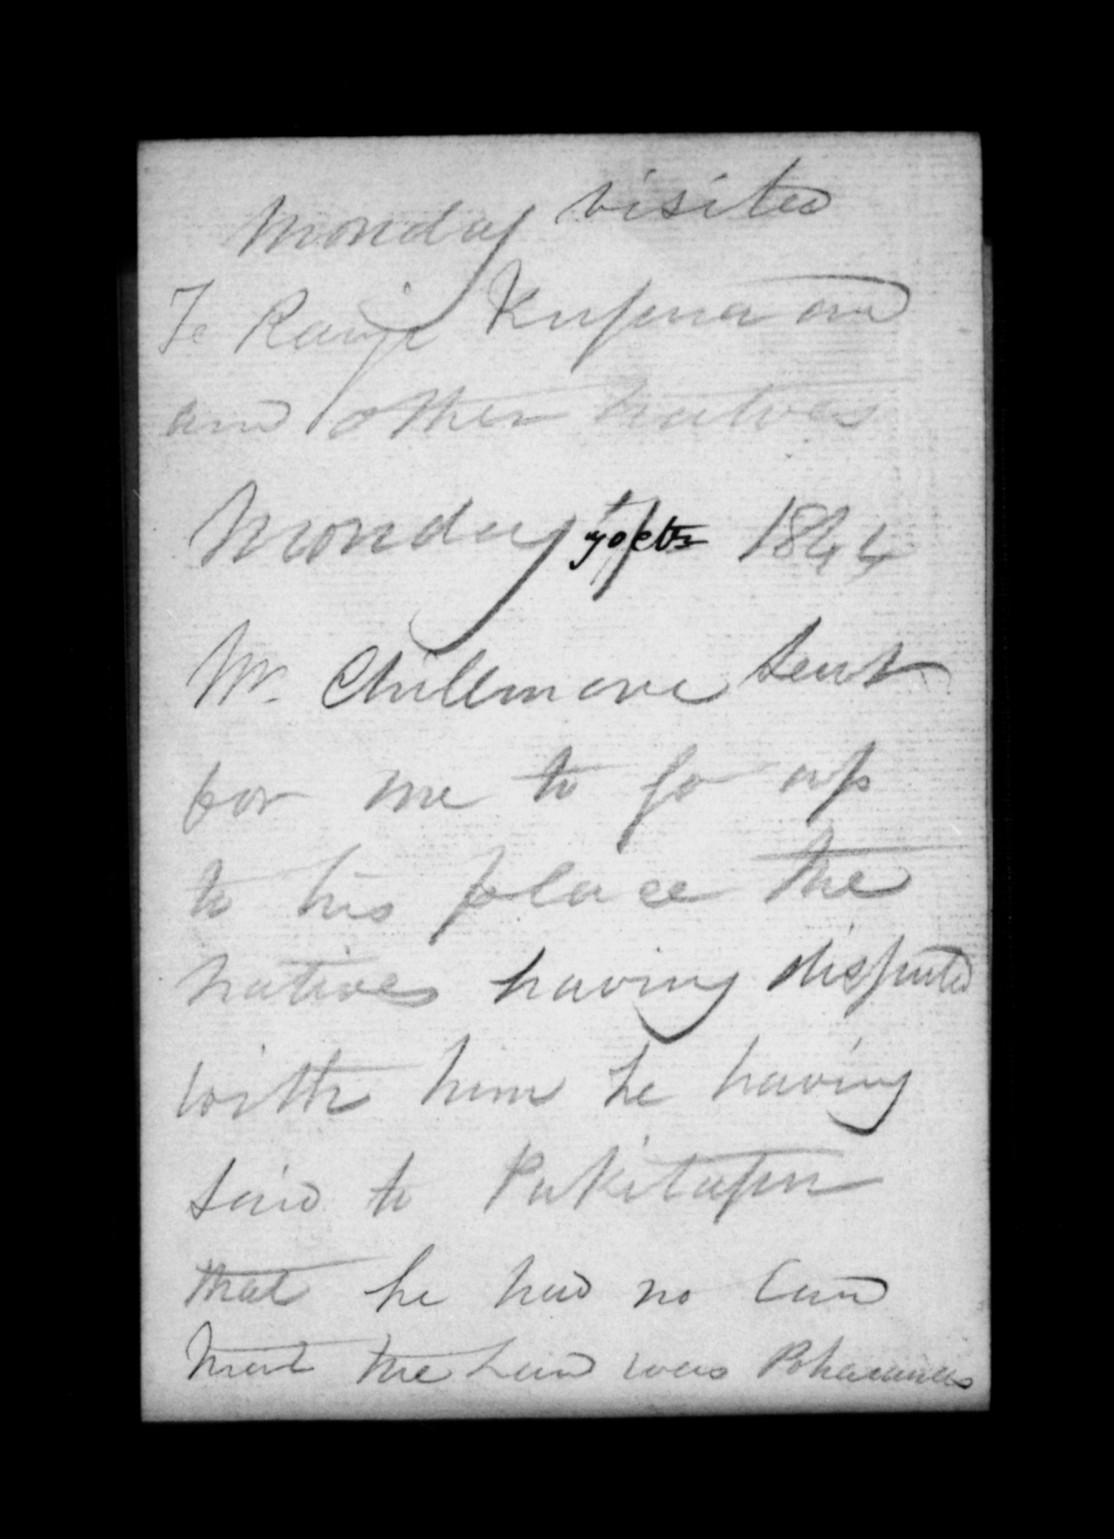 Monday visited
Te Rangi Kupena and
and other natives
Monday 7 Octr 1844
Mr. Chillmore sent
for me to go up
to his place the
natives having disputed
with him he having
said to Pukitapu
that he had no land
that the land was